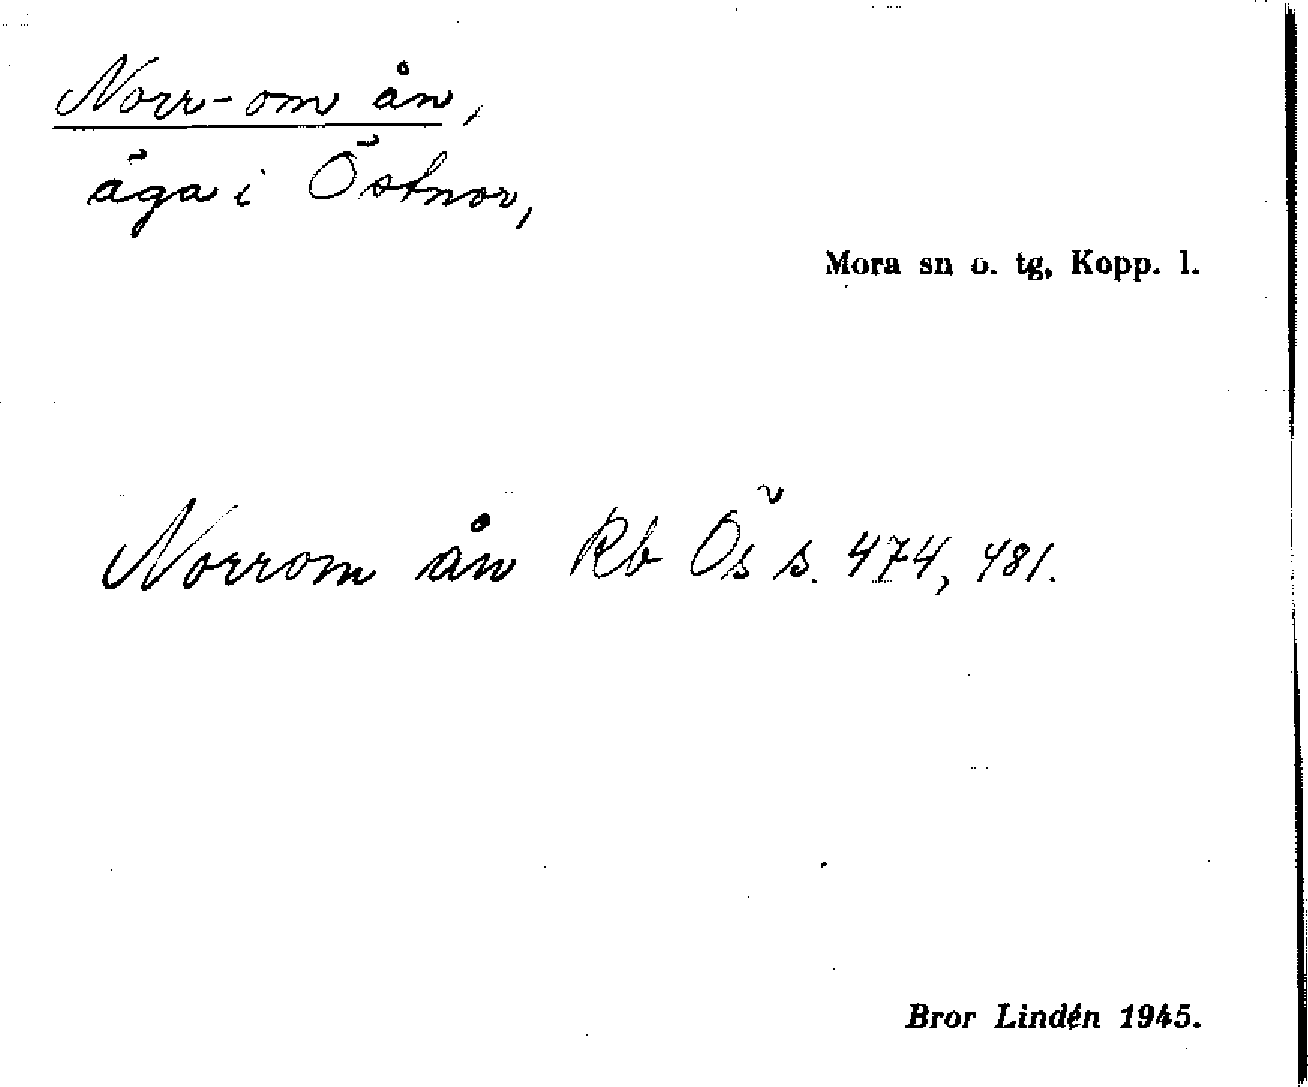 Norr-om ån,
äga i Östnor,
Mora sn o. tg, Kopp. l.
Norrom ån Rb Ös s. 474, 481.
Bror Lindén 1945.